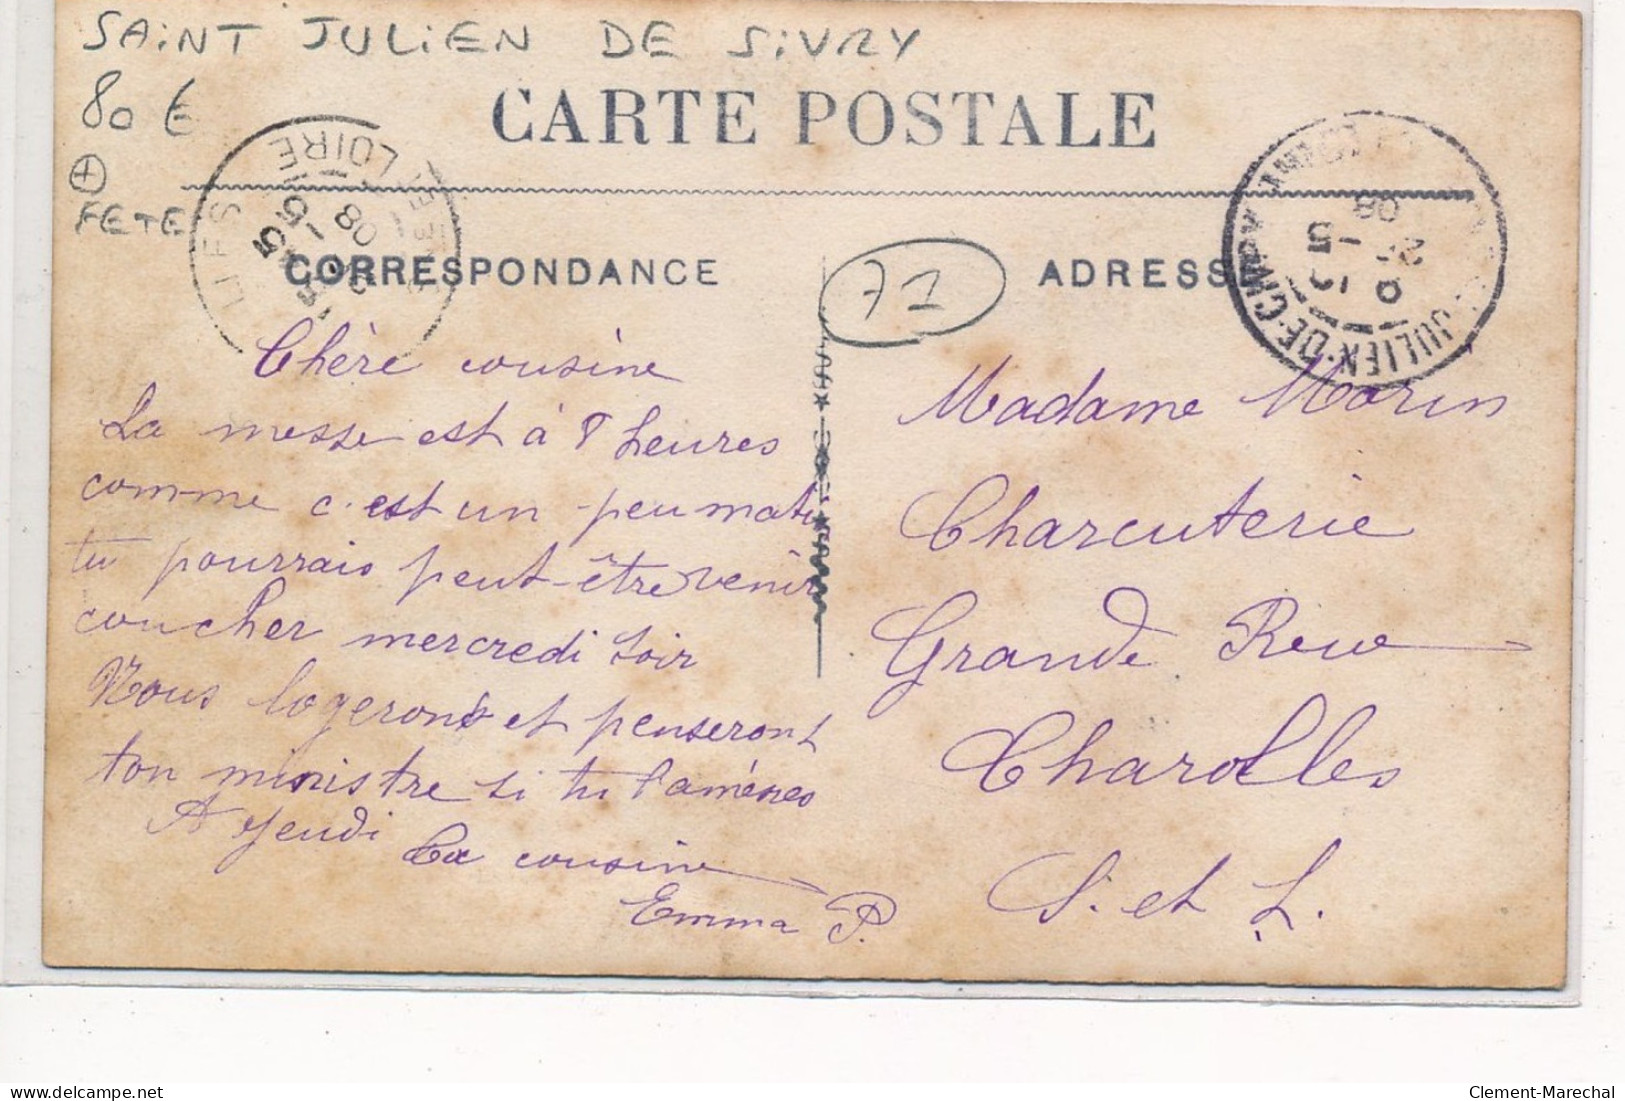 SAINT JULIEN DE SIVRY
80 €
+
FETE
CARTE POSTALE
LOIRE
5 -5 08
JULIEN-DE-CIVRY
-5 08
CORRESPONDANCE
71
ADRESS
Chère cousine
La messe est à 8 heures
comme c'est un peu matin
tu pourrais peut-être venir
coucher mercredi soir
Nous logerons et penseront
ton ministre si tu l'amènes
A jeudi
Ta cousine
Emma P.
Madame Morin
Charcuterie
Grande Rue
Charolles
S. et L.
Clement-Marechal